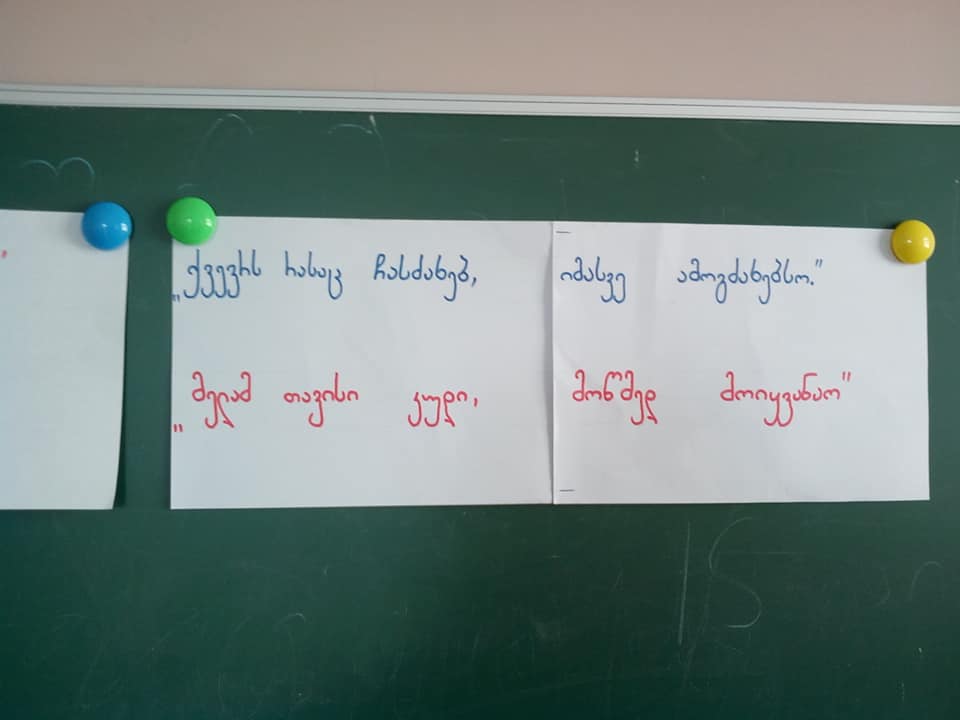 „ქვევრს რასაც ჩასძახებ, იმასვე ამოგძახებსო."
„მელამ თავისი კუდი, მოწმედ მოიყვანაო"